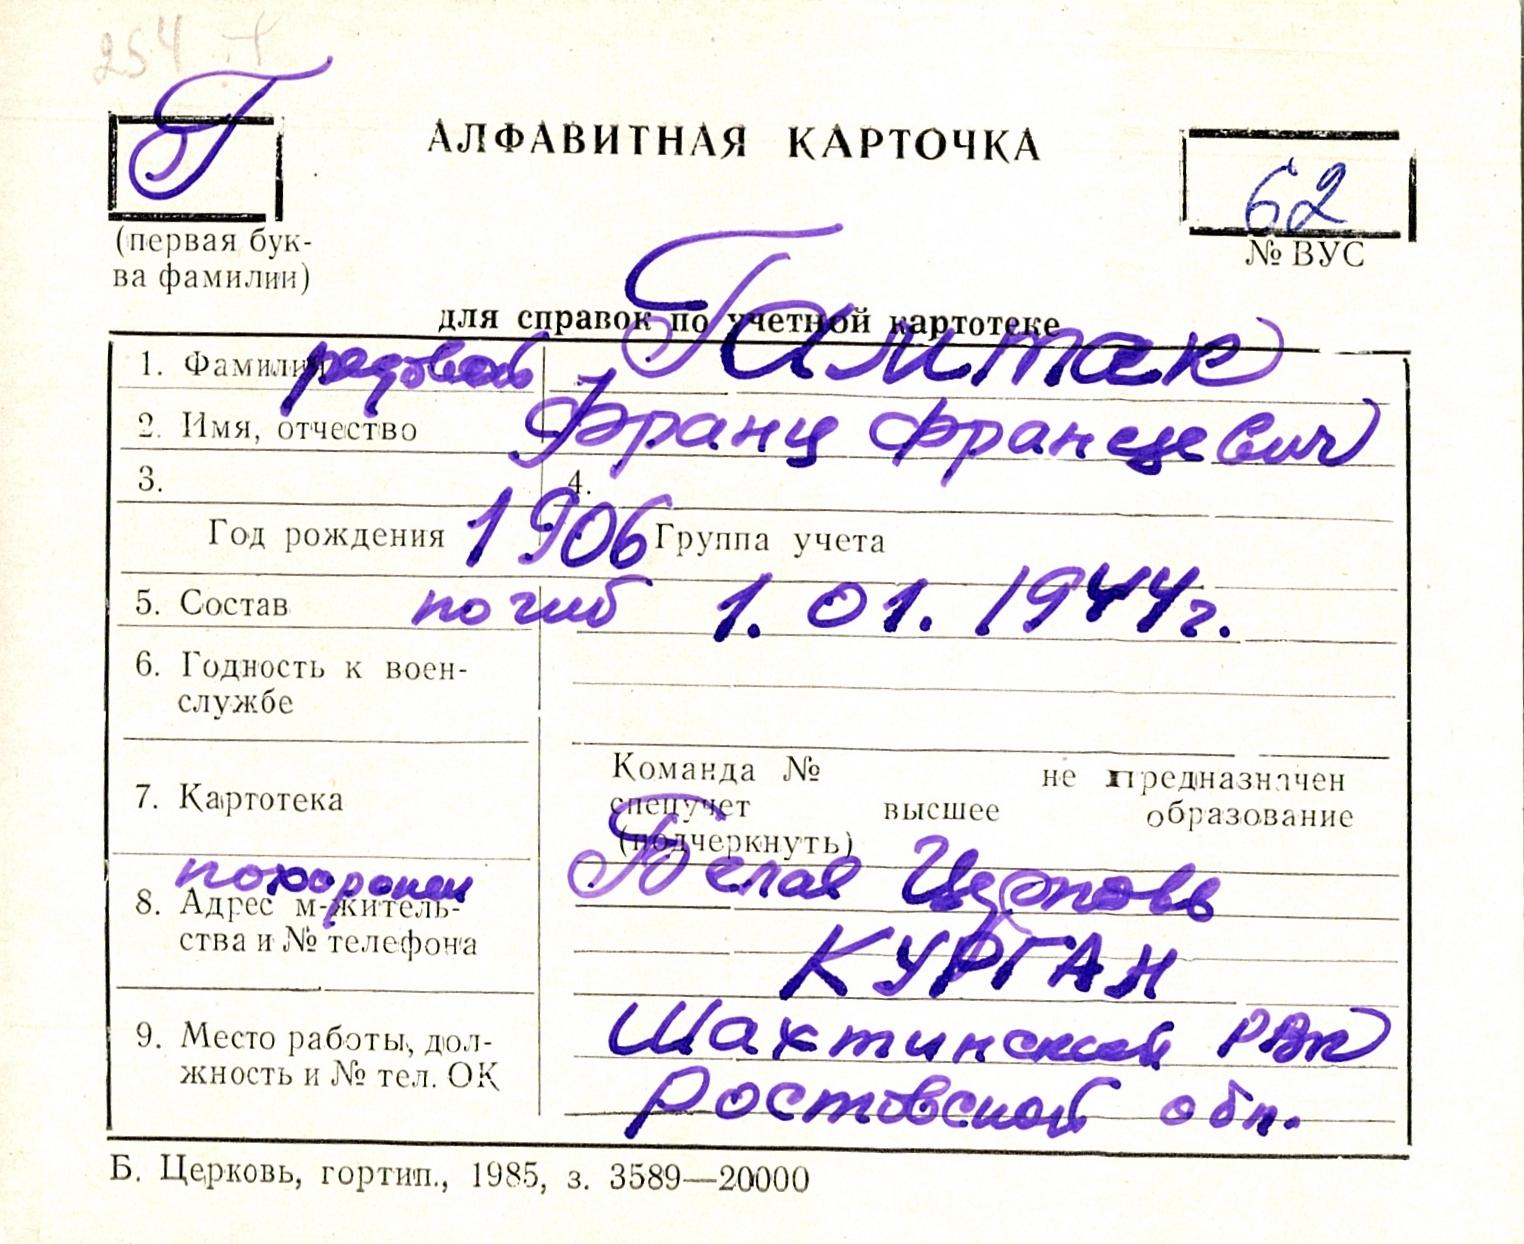 254
Г
АЛФАВИТНАЯ КАРТОЧКА
62
(первая бук-
ва фамилии)
№ ВУС
для справок по учетной картотеке
1. Фамилия рядовой Гамтак
2. Имя, отчество Франц Францевич
3.
4.
Год рождения 1906 Группа учета
5. Состав погиб 1.01.1944г.
6. Годность к воен-
службе
7. Картотека
Команда № не предназначен
спецучет высшее образование
(подчеркнуть)
похоронен Белая Церковь
8. Адрес м-житель-
ства и № телефона
КУРГАН
9. Место работы, дол-
жность и № тел. ОК
Шахтинский РВК
Ростовской обл.
Б. Церковь, гортип., 1985, з. 3589—20000